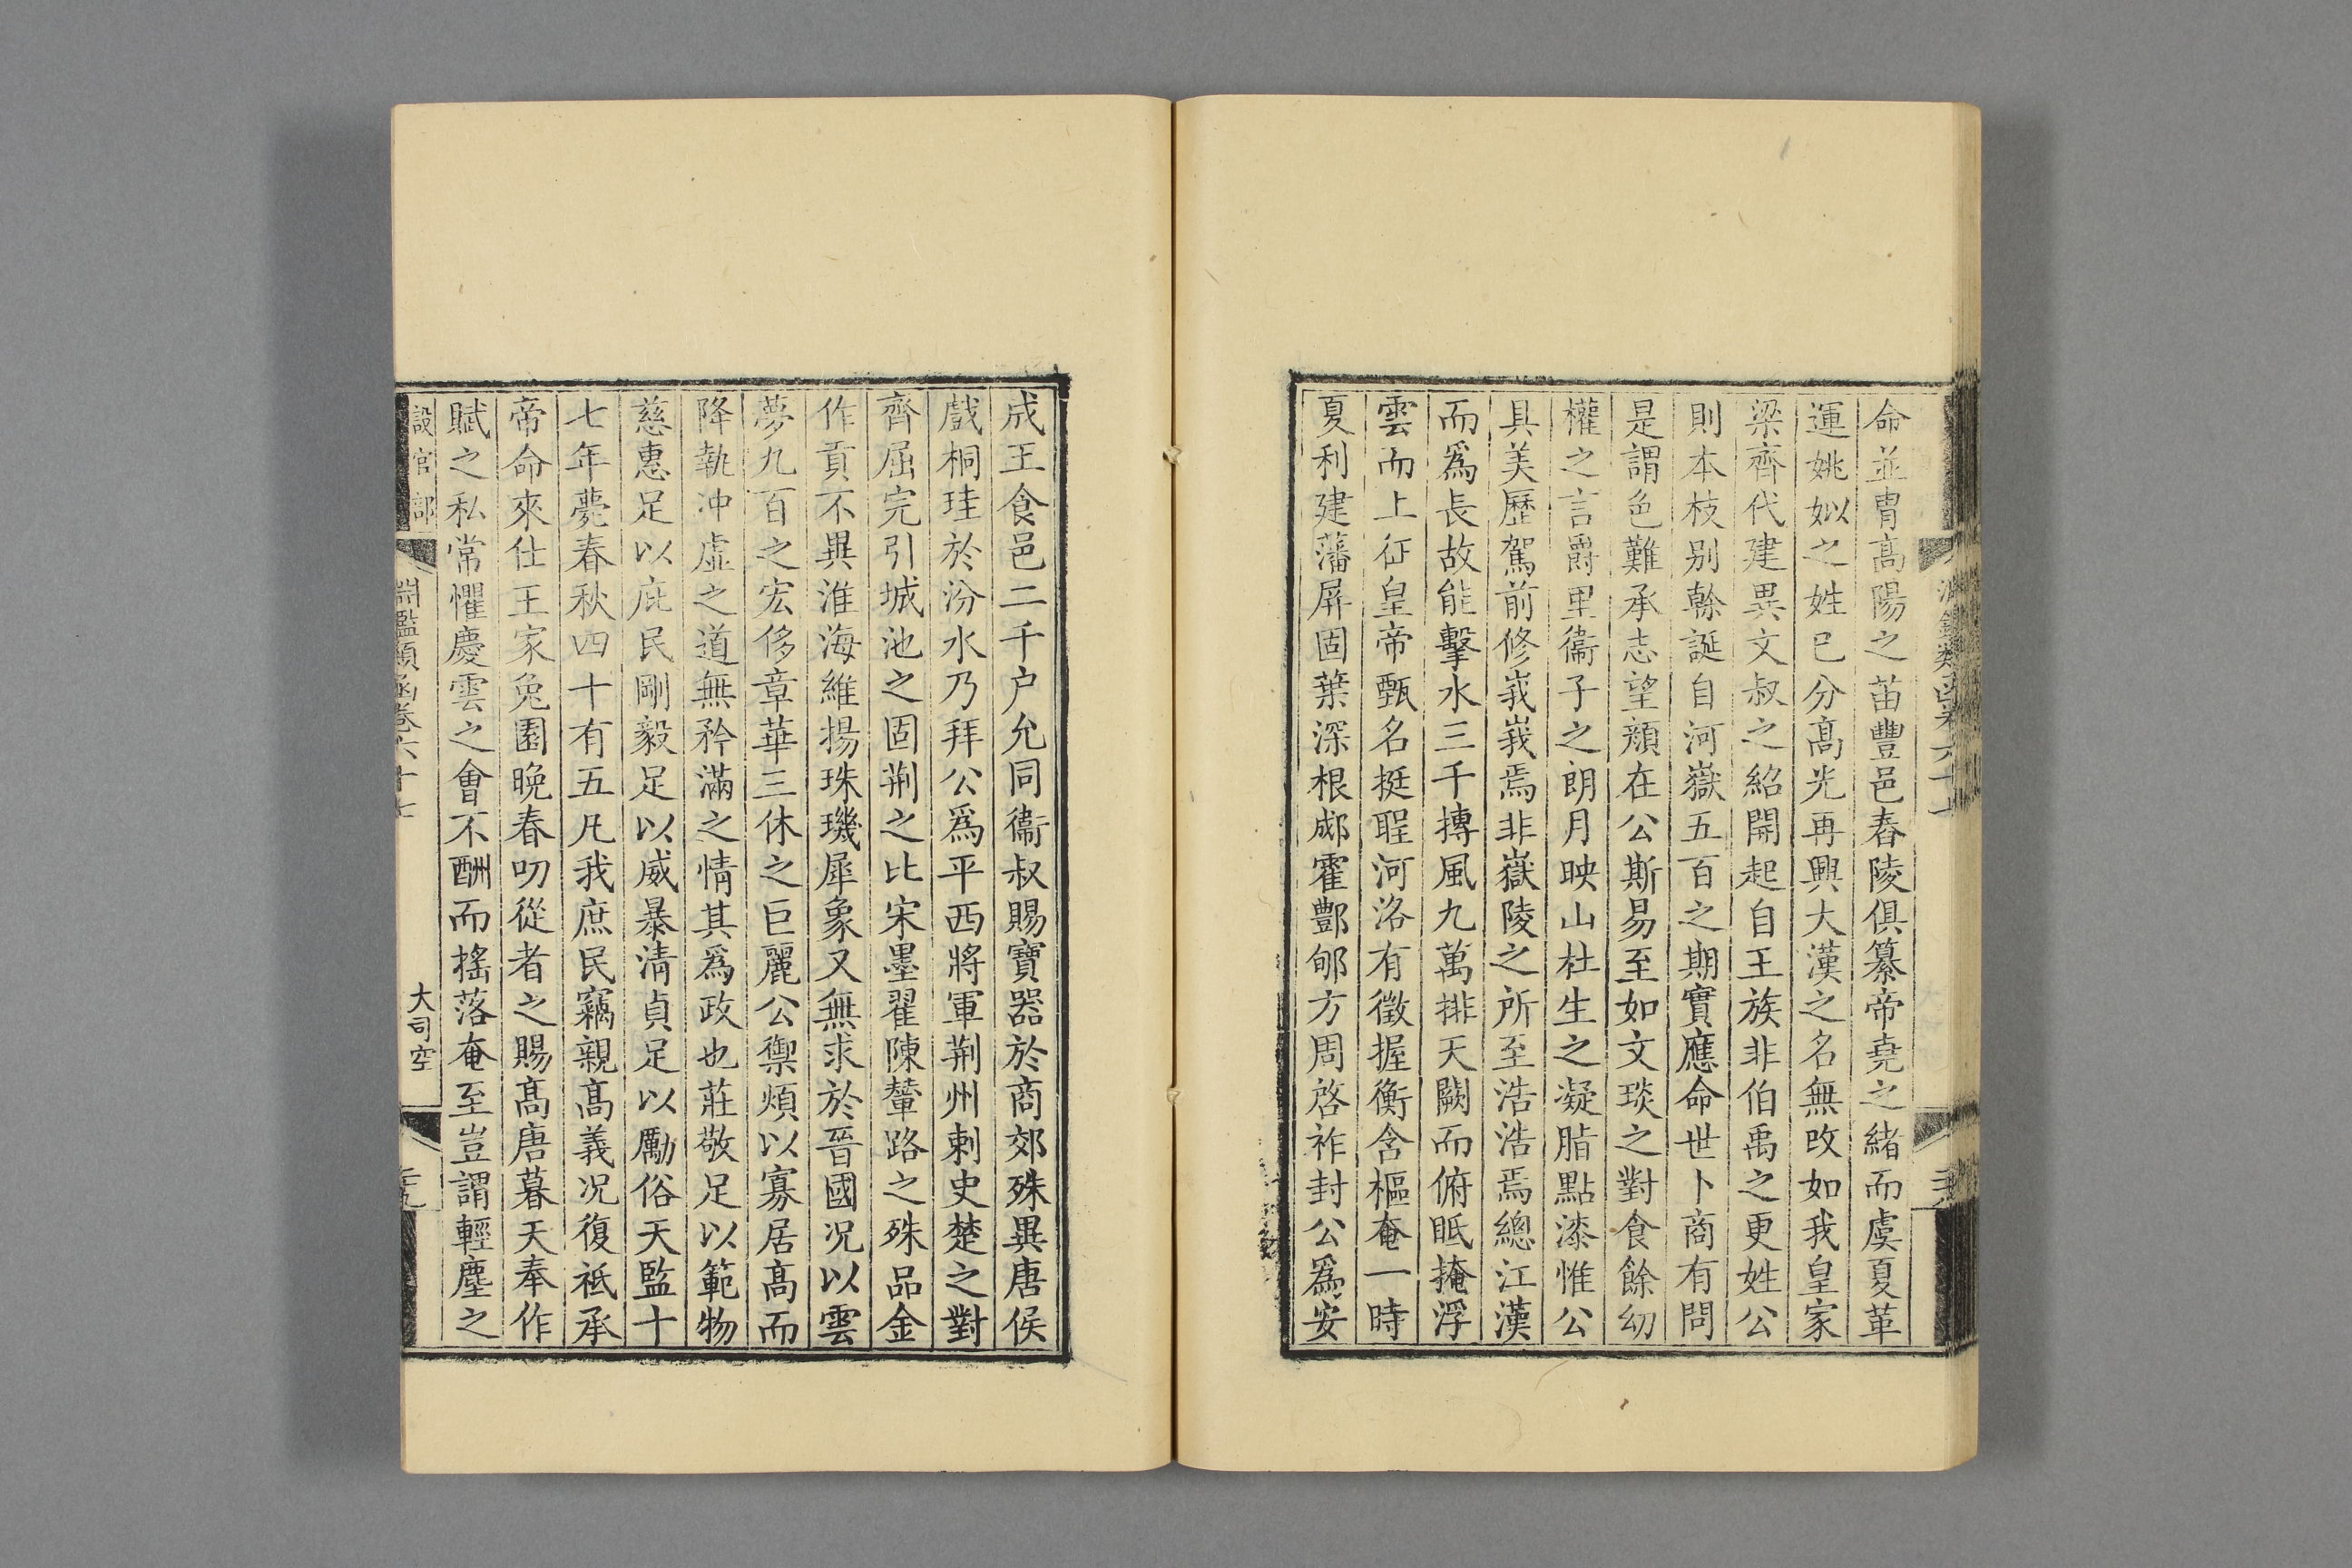 命並胄髙陽之苗豐邑舂陵俱纂帝堯之緒而虞夏革
運姚姒之姓巳分髙光再興大漢之名無改如我皇家
梁齊代建異文叔之紹開起自王族非伯禹之更姓公
則本枝别榦誕自河嶽五百之期實應命世卜商有問
是謂色難承志望顔在公斯易至如文琰之對食餘幼
權之言爵里衞子之朗月映山杜生之凝脂點漆惟公
具美歷駕前修峩峩焉非嶽陵之所至浩浩焉總江漢
而爲長故能擊水三千摶風九萬排天闕而俯眡掩浮
雲而上征皇帝甄名挺聖河洛有徵握衡含樞奄一時
夏利建藩屏固葉深根郕霍酆郇方周啓祚封公爲安
成王食邑二千户允同衞叔賜寶器於商郊殊異唐侯
戲桐珪於汾水乃拜公爲平西將軍荆州刺史楚之對
齊屈完引城池之固荆之比宋墨翟陳輦路之殊品金
作貢不異淮海維揚珠璣犀象又無求於晉國况以雲
夢九百之宏侈章華三休之巨麗公禦煩以寡居髙而
降執沖虛之道無矜滿之情其爲政也莊敬足以範物
慈惠足以庇民剛毅足以威暴清貞足以勵俗天監十
七年薨春秋四十有五凡我庶民竊親髙義况復祗承
帝命來仕王家兔園晚春叨從者之賜髙唐暮天奉作
賦之私常懼慶雲之會不酬而搖落奄至豈謂輕塵之
設官部
淵鑑類函卷六十七
大司空